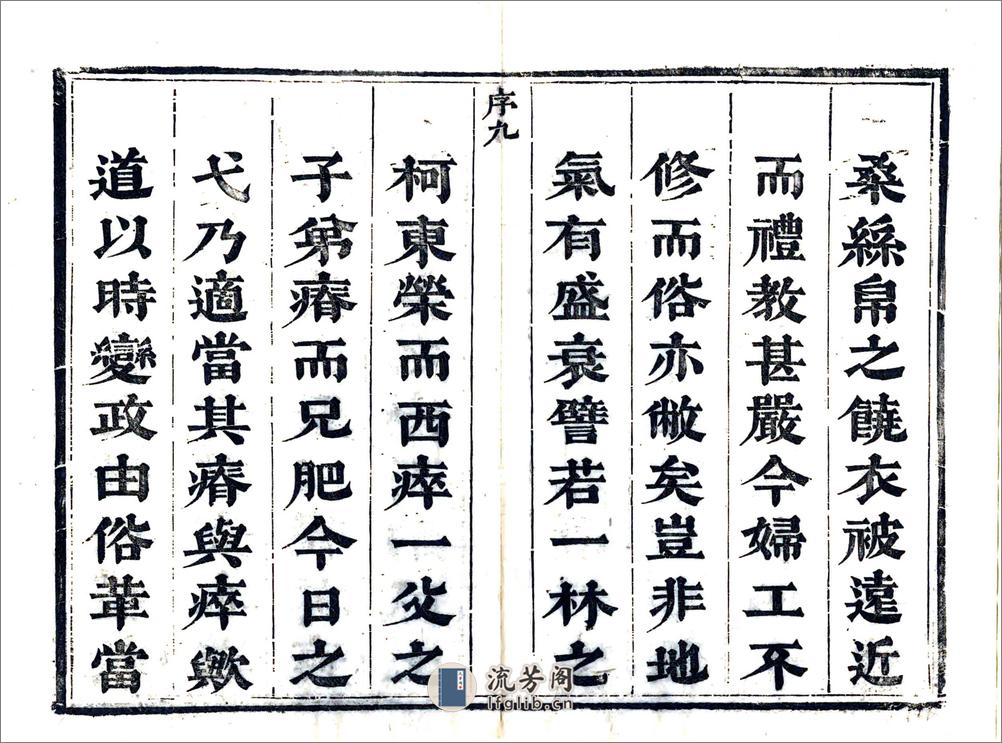 桑絲帛之饒衣被遠近
而禮教甚嚴今婦工不
修而俗亦敝矣豈非地
氣有盛衰譬若一林之
序九
柯東榮而西瘁一父之
子弟瘠而兄肥今日之
弋乃適當其瘠與瘁歟
道以時變政由俗革當
流芳阁
lfglib.cn